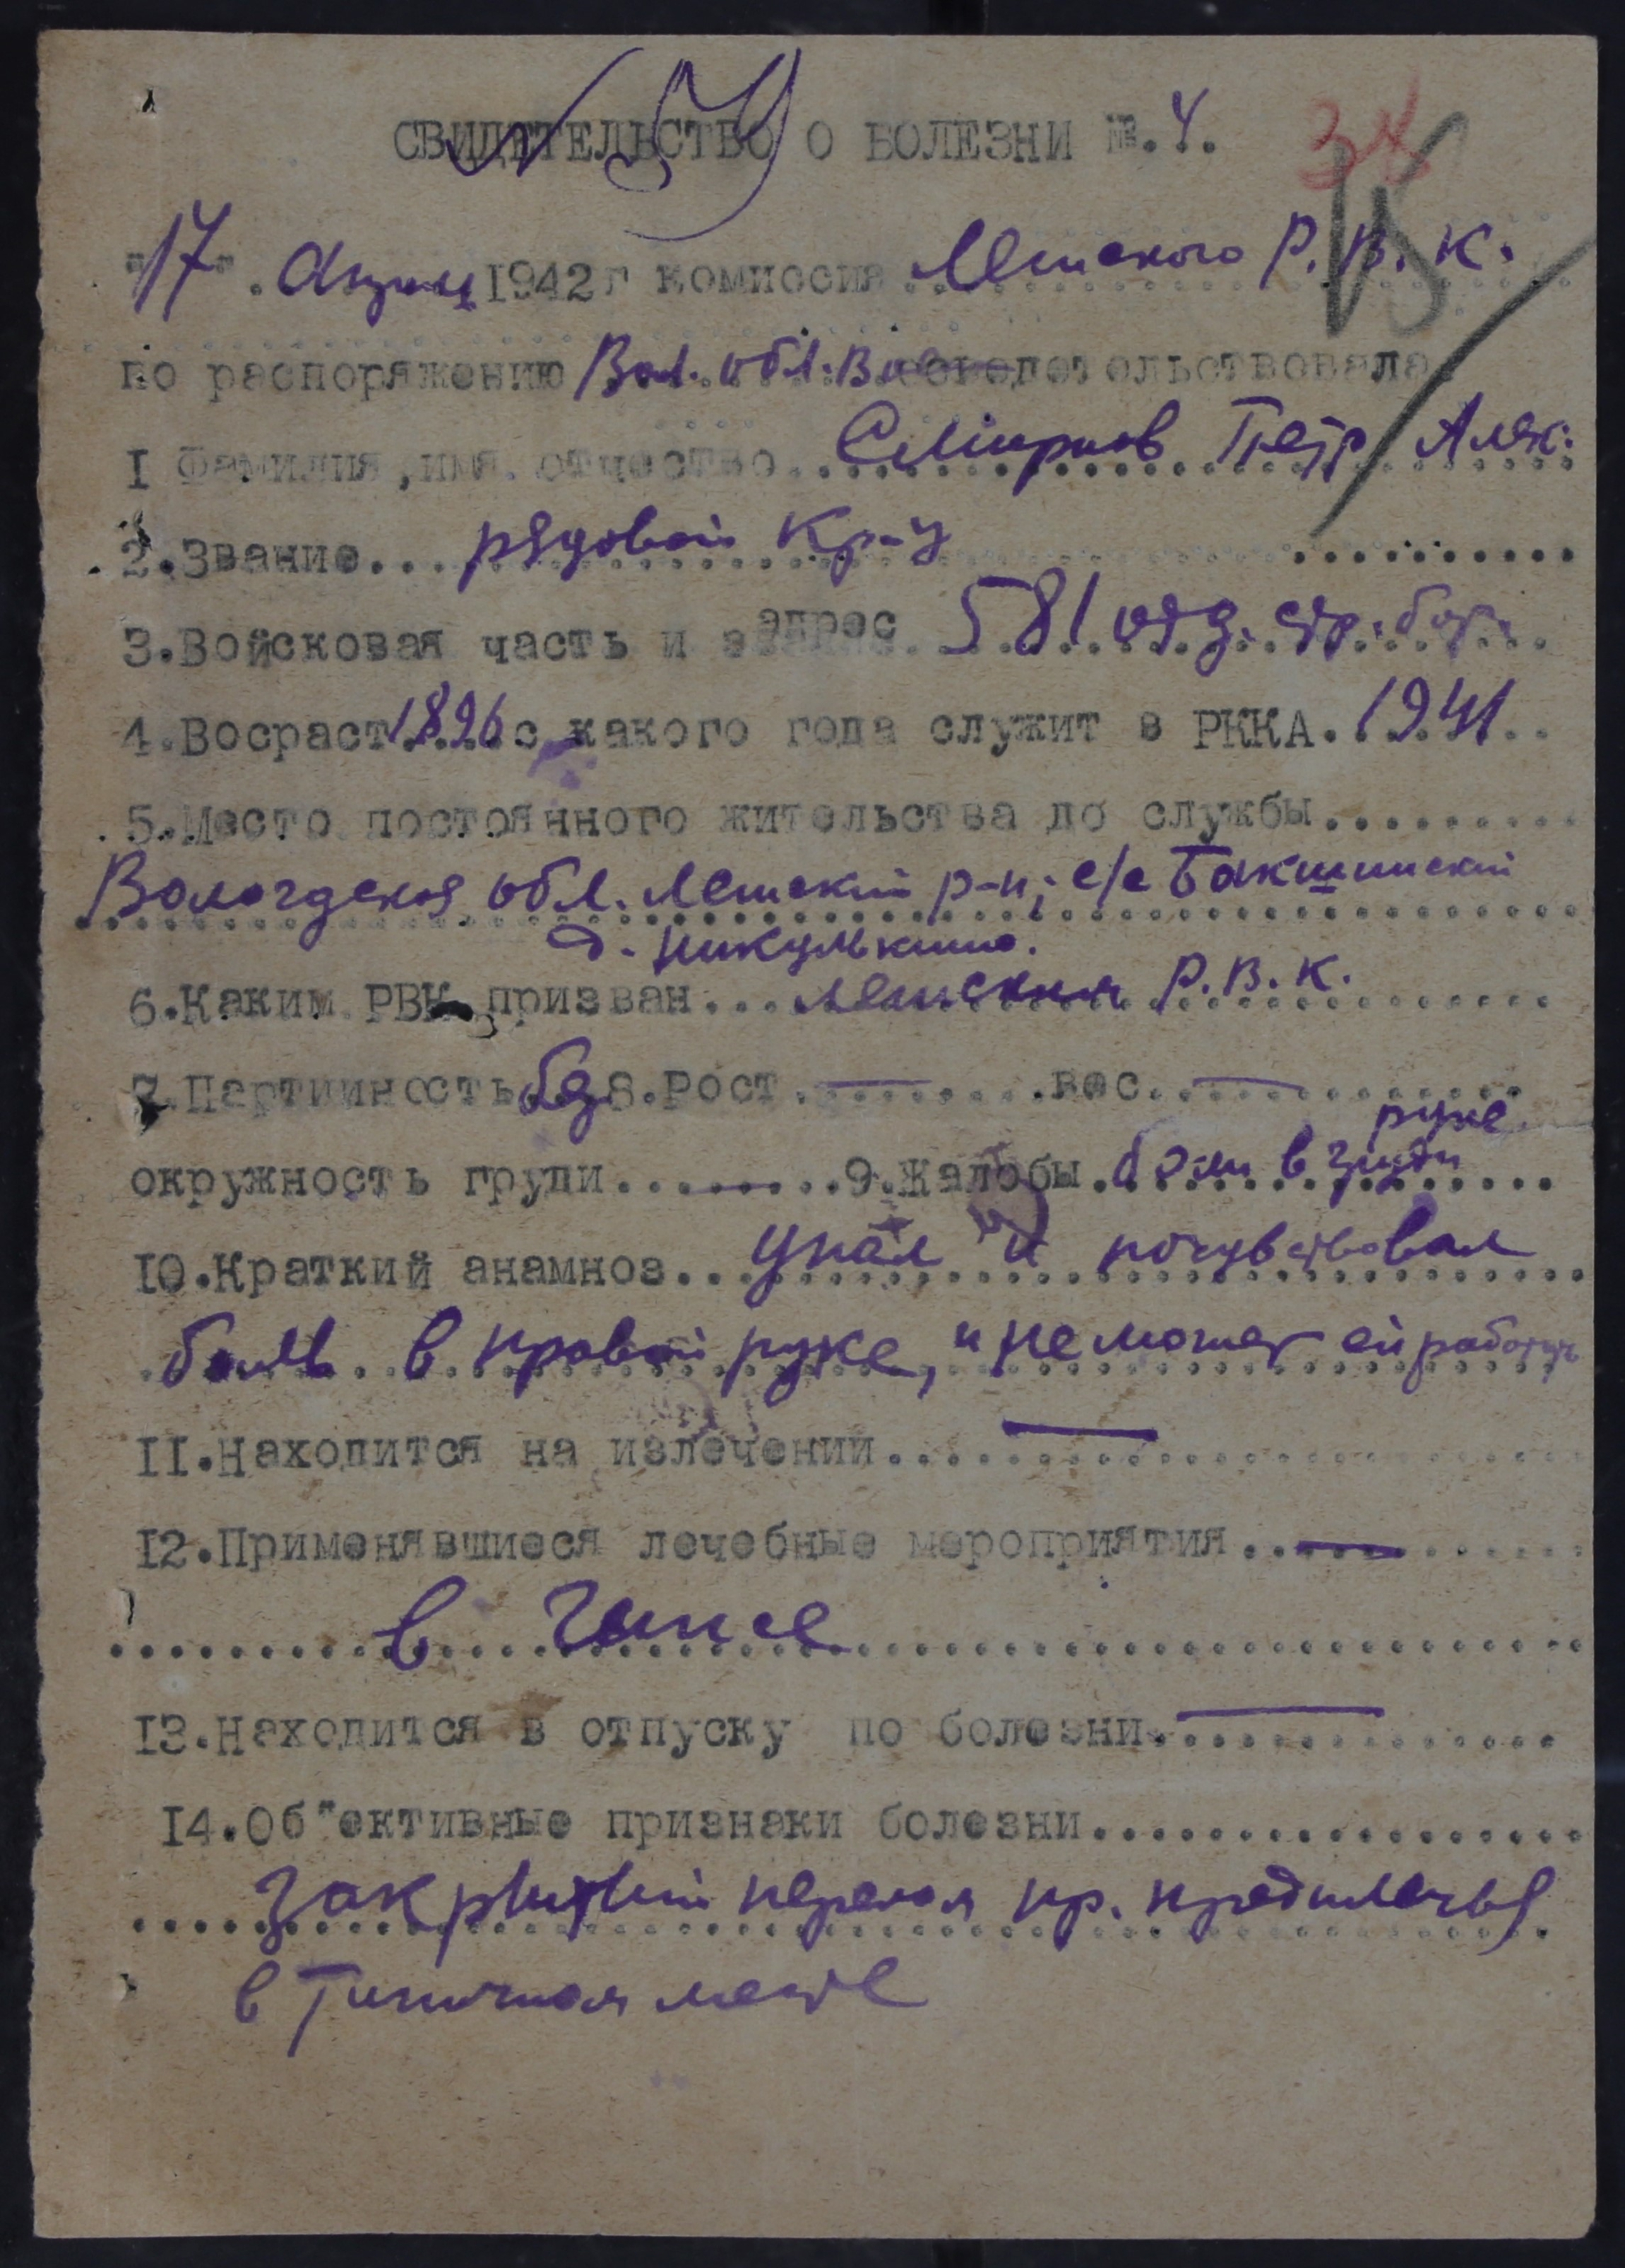 № 59
СВИДЕТЕЛЬСТВО О БОЛЕЗНИ №.4.
"17". Апреля 1942г комиссия Лежского Р.В.К.
по распоряжению Вол. обл. В свидетельствовала
I Фамилия, имя отчество Смирнов Петр Алек.
2.Звание... рядовой кр-ц
3.Войсковая часть и адрес 581 отд. стр. бат.
4.Восраст 1896 с какого года служит в РККА. 1941
5.Место постоянного жительства до службы
Вологодская обл. Лежский р-н; с/с Бакшинский
д. Никулькино.
6.Каким РВК призван... Лежским Р.В.К.
7.Партийность б/п 8.Рост — вес —
руке
окружность груди — 9.Жалобы боли в груди
10.Краткий анамноз... упал и почувствовал
боль в правой руке, и не может ей работать
II.Находится на излечении —
I2.Применявшиеся лечебные мероприятия —
в гипсе
I3.Находится в отпуску по болезни —
I4.Об"ективные признаки болезни
Закрытый перелом пр. предплечья
в типичном месте